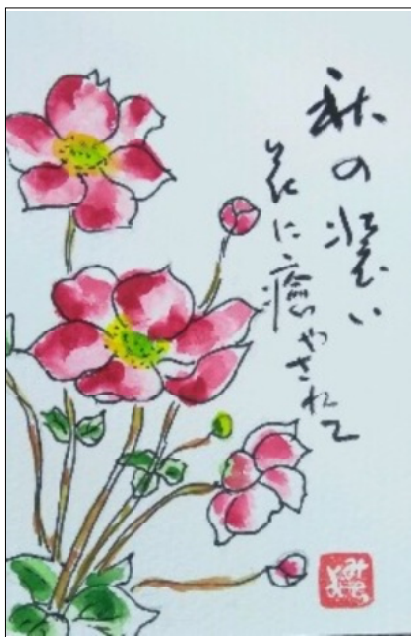 秋の装い
花に癒やされて